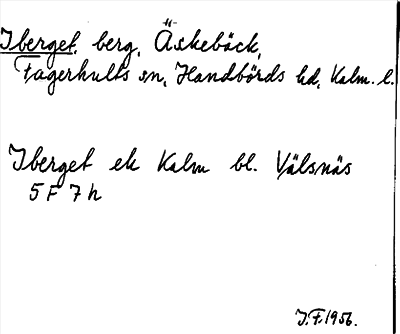 Iberget, berg, Äskebäck,
Fagerhults sn, Handbörds hd, Kalm. l.
Iberget ek Kalm bl. Välsnäs
5 F 7 h
J.F. 1956.